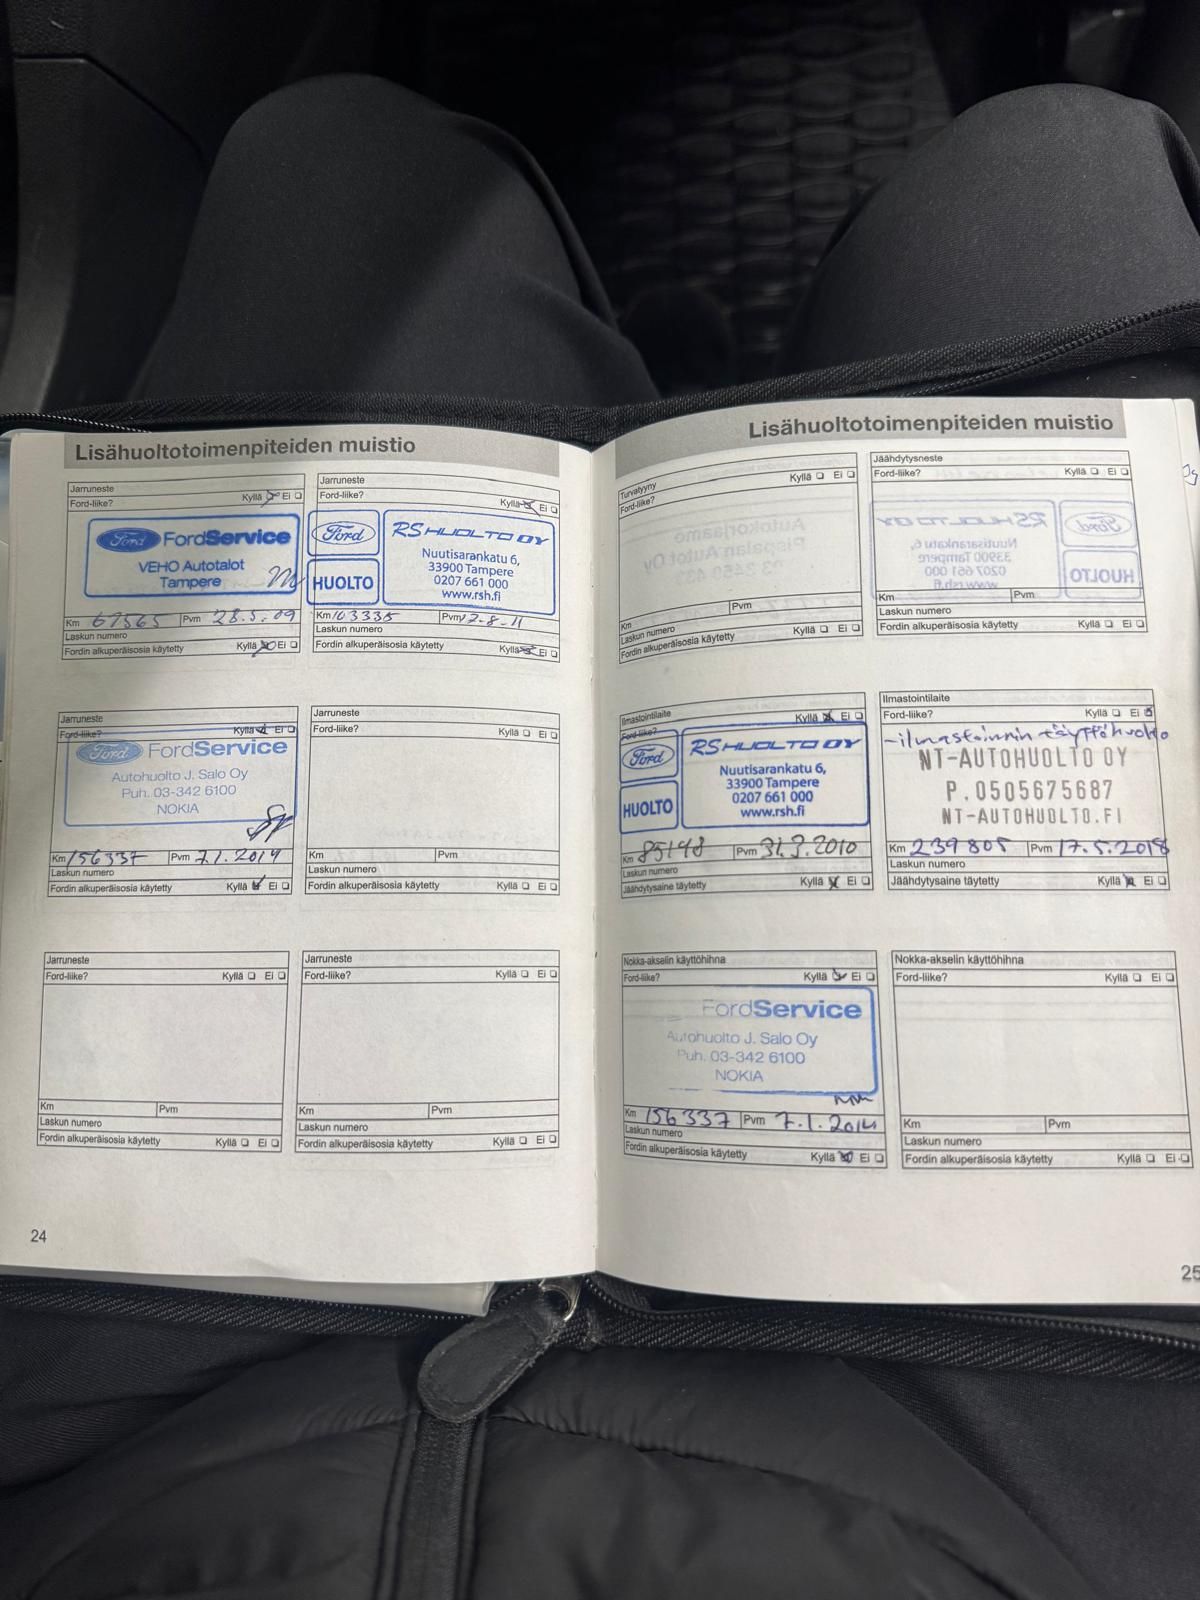 Lisähuoltotoimenpiteiden muistio
Jarruneste
Ford-liike? Kyllä Ei
Ford FordService
VEHO Autotalot
Tampere
Km 67565 Pvm 28.5.09
Laskun numero
Fordin alkuperäisosia käytetty Kyllä Ei
Jarruneste
Ford-liike? Kyllä Ei
Ford
HUOLTO
RS HUOLTO OY
Nuutisarankatu 6,
33900 Tampere
0207 661 000
www.rsh.fi
Km 103335 Pvm 17.8.11
Laskun numero
Fordin alkuperäisosia käytetty Kyllä Ei
Jarruneste
Ford-liike? Kyllä Ei
Ford FordService
Autohuolto J. Salo Oy
Puh. 03-342 6100
NOKIA
Km 156337 Pvm 7.1.2014
Laskun numero
Fordin alkuperäisosia käytetty Kyllä Ei
Jarruneste
Ford-liike? Kyllä Ei
Km Pvm
Laskun numero
Fordin alkuperäisosia käytetty Kyllä Ei
Jarruneste
Ford-liike? Kyllä Ei
Km Pvm
Laskun numero
Fordin alkuperäisosia käytetty Kyllä Ei
Jarruneste
Ford-liike? Kyllä Ei
Km Pvm
Laskun numero
Fordin alkuperäisosia käytetty Kyllä Ei
24
Lisähuoltotoimenpiteiden muistio
Turvatyyny
Ford-liike? Kyllä Ei
Km Pvm
Laskun numero
Fordin alkuperäisosia käytetty Kyllä Ei
Jäähdytysneste
Ford-liike? Kyllä Ei
Km Pvm
Laskun numero
Fordin alkuperäisosia käytetty Kyllä Ei
Ilmastointilaite
Ford-liike? Kyllä Ei
Ford
HUOLTO
RS HUOLTO OY
Nuutisarankatu 6,
33900 Tampere
0207 661 000
www.rsh.fi
Km 85148 Pvm 31.3.2010
Laskun numero
Jäähdytysaine täytetty Kyllä Ei
Ilmastointilaite
Ford-liike? Kyllä Ei
-ilmastoinnin täyttöhuolto
NT-AUTOHUOLTO OY
P.0505675687
NT-AUTOHUOLTO.FI
Km 239805 Pvm 17.5.2018
Laskun numero
Jäähdytysaine täytetty Kyllä Ei
Nokka-akselin käyttöhihna
Ford-liike? Kyllä Ei
FordService
Autohuolto J. Salo Oy
Puh. 03-342 6100
NOKIA
Km 156337 Pvm 7.1.2014
Laskun numero
Fordin alkuperäisosia käytetty Kyllä Ei
Nokka-akselin käyttöhihna
Ford-liike? Kyllä Ei
Km Pvm
Laskun numero
Fordin alkuperäisosia käytetty Kyllä Ei
25